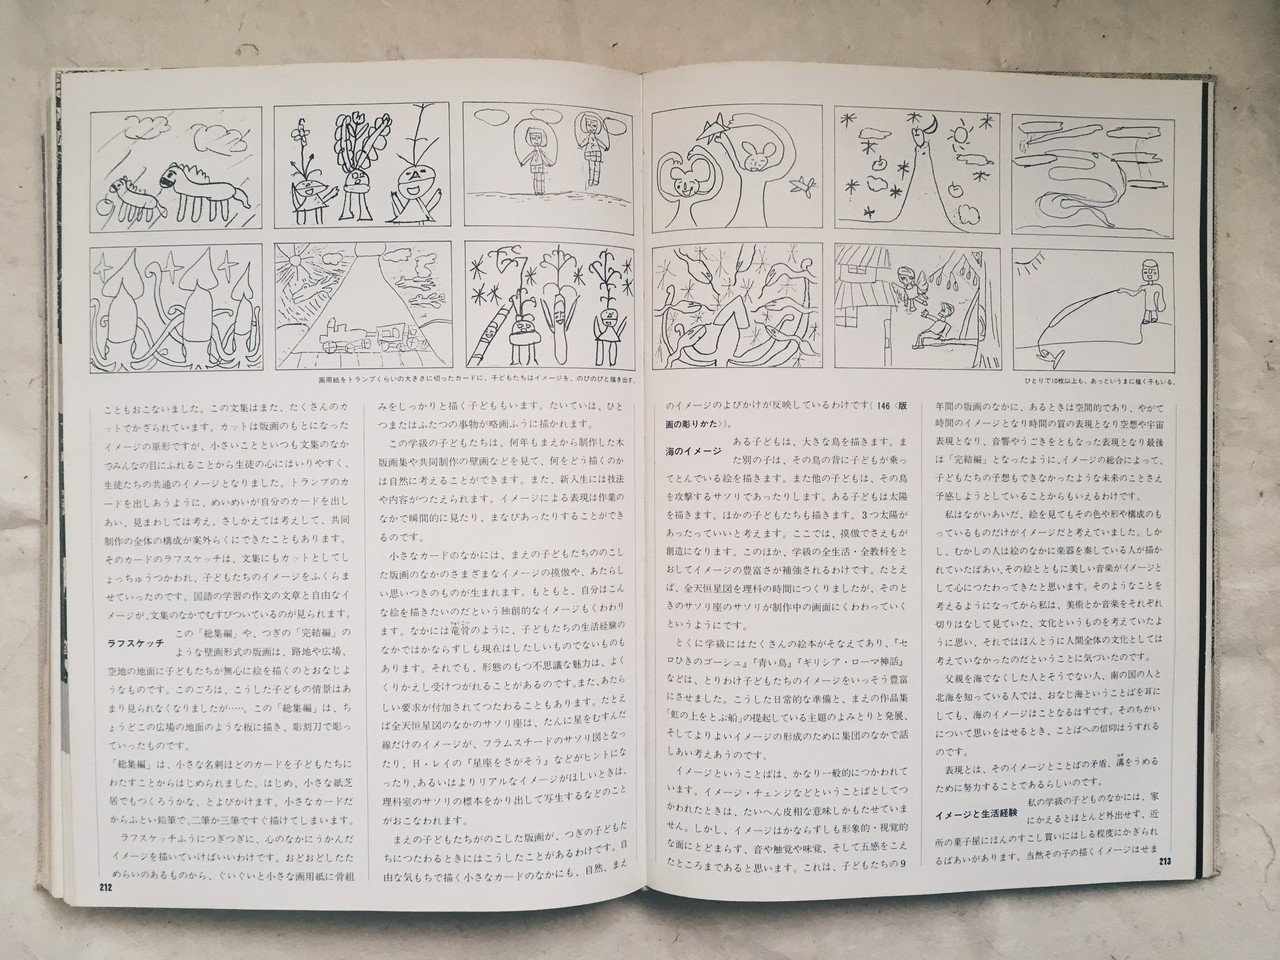 画用紙をトランプくらいの大きさに切ったカードに、子どもたちはイメージを、のびのびと描き出す。
こともおこないました。この文集はまた、たくさんのカ
ットでかざられています。カットは版画のもとになった
イメージの原形ですが、小さいこといつも文集のなか
でみんなの目にふれることから生徒の心にはいりやすく、
生徒たちの共通のイメージとなりました。トランプのカ
ードを出しあうように、めいめいが自分のカードを出し
あい、見まわしては考え、さしかえては考えして、共同
制作の全体の構成が案外らくにできたこともあります。
そのカードのラフスケッチは、文集にもカットとしてし
ょっちゅうつかわれ、子どもたちのイメージをふくらま
せていったのです。国語の学習の作文の文章と自由なイ
メージが、文集のなかでむすびついているのが見られます。
ラフスケッチ
この「総集編」や、つぎの「完結編」の
ような壁画形式の版画は、路地や広場、
空地の地面に子どもたちが無心に絵を描くのとおなじよ
うなものです。このごろは、こうした子どもの情景はあ
まり見られなくなりましたが……。この「総集編」は、ちょ
うどこの広場の地面のような板に描き、彫刻刀で彫っ
ていったものです。
「総集編」は、小さな名刺ほどのカードを子どもたちに
わたすことからはじめられました。はじめ、小さな紙芝
居でもつくろうかな、とよびかけます。小さなカードだ
からふとい鉛筆で、二筆か三筆ですぐ描けてしまいます。
ラフスケッチふうにつぎつぎに、心のなかにうかんだ
イメージを描いていけばいいわけです。おどおどしたた
めらいのあるものから、ぐいぐいと小さな画用紙に骨組
212
みをしっかりと描く子どももいます。たいていは、ひと
つまたはふたつの事物が略画ふうに描かれます。
この学級の子どもたちは、何年もまえから制作した木
版画集や共同制作の壁画などを見て、何をどう描くのか
は自然に考えることができます。また、新入生には技法
や内容がつたえられます。イメージによる表現は作業の
なかで瞬間的に見たり、まなびあったりすることができ
るのです。
小さなカードのなかには、まえの子どもたちののこし
た版画のなかのさまざまなイメージの摸倣や、あたらし
い思いつきのものが生まれます。もともと、自分はこん
な絵を描きたいのだという独創的なイメージもくわわり
ます。なかには竜骨のように、子どもたちの生活経験の
なかではかならずしも現在はしたしいものでないものも
あります。それでも、形態のもつ不思議な魅力は、よく
くりかえし受けつがれることがあるのです。また、あたら
しい要求が付加されてつたわることもあります。たとえ
ば全天恒星図のなかのサソリ座は、たんに星をむすんだ
線だけのイメージが、フラムスチードのサソリ図となっ
たり、H・レイの『星座をさがそう』などがヒントにな
ったり、あるいはよりリアルなイメージがほしいときは、
理科室のサソリの標本をかり出して写生するなどのこと
がおこなわれます。
まえの子どもたちがのこした版画が、つぎの子どもた
ちにつたわるときにはこうしたことがあるわけです。自
由な気もちで描く小さなカードのなかにも、自然、まえ
ひとりで10枚以上も、あっというまに描く子もいる。
のイメージのよびかけが反映しているわけです(146〈版
画の彫りかた〉)。
海のイメージ
ある子どもは、大きな鳥を描きます。ま
た別の子は、その鳥の背に子どもが乗っ
てとんでいる絵を描きます。また他の子どもは、その鳥
を攻撃するサソリであったりします。ある子どもは太陽
を描きます。ほかの子どもたちも描きます。3つ太陽が
あったっていいと考えます。ここでは、摸倣でさえもが
創造になります。このほか、学級の全生活・全教科をと
おしてイメージの豊富さが補強されるわけです。たとえ
ば、全天恒星図を理科の時間につくりましたが、そのと
きのサソリ座のサソリが制作中の画面にくわわっていく
というようにです。
とくに学級にはたくさんの絵本がそなえてあり、『セ
ロひきのゴーシュ』『青い鳥』『ギリシア・ローマ神話』
などは、とりわけ子どもたちのイメージをいっそう豊富
にさせました。こうした日常的な準備と、まえの作品集
「虹の上をとぶ船」の提起している主題のよみとりと発展、
そしてよりよいイメージの形成のために集団のなかで話
しあい考えあうのです。
イメージということばは、かなり一般的につかわれて
います。イメージ・チェンジなどということばとしてつ
かわれたときは、たいへん皮相な意味しかもたせていま
せん。しかし、イメージはかならずしも形象的・視覚的
な面にとどまらず、音や触覚や味覚、そして五感をこえ
たところまであると思います。これは、子どもたちの9
年間の版画のなかに、あるときは空間的であり、やがて
時間のイメージとなり時間の質の表現となり空想や宇宙
表現となり、音響やうごきをともなった表現となり最後
は「完結編」となったように、イメージの総合によって、
子どもたちの予想もできなかったような未来のことさえ
予感しようとしていることからもいえるわけです。
私はながいあいだ、絵を見てもその色や形や構成のも
っているものだけがイメージだと考えていました。しか
し、むかしの人は絵のなかに楽器を奏している人が描か
れていたばあい、その絵とともに美しい音楽がイメージと
して心につたわってきたと思います。そのようなことを
考えるようになってから私は、美術とか音楽をそれぞれ
切りはなして見ていた、文化というものを考えていたよ
うに思い、それではほんとうに人間全体の文化としては
考えていなかったのだということに気づいたのです。
父親を海でなくした人とそうでない人、南の国の人と
北海を知っている人では、おなじ海ということばを耳に
しても、海のイメージはことなるはずです。そのちがい
について思いをはせるとき、ことばへの信仰はうすれる
のです。
表現とは、そのイメージとことばの矛盾、溝をうめる
ために努力することであるらしいのです。
イメージと生活経験
私の学級の子どものなかには、家
にかえるとほとんど外出せず、近
所の菓子屋にほんのすこし買いにはしる程度にかぎられ
るばあいがあります。当然その子の描くイメージはせま
213